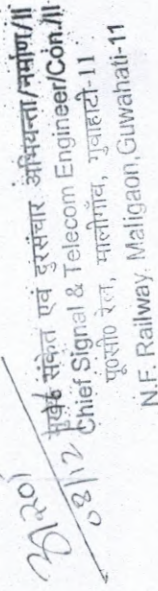 03/12
मुख्य संकेत एवं दुरसंचार अभियन्ता/नर्माण/II
Chief Signal & Telecom Engineer/Con./II
पू०सी० रेल, मालीगाँव, गुवाहाटी-11
N.F. Railway, Maligaon, Guwahati-11